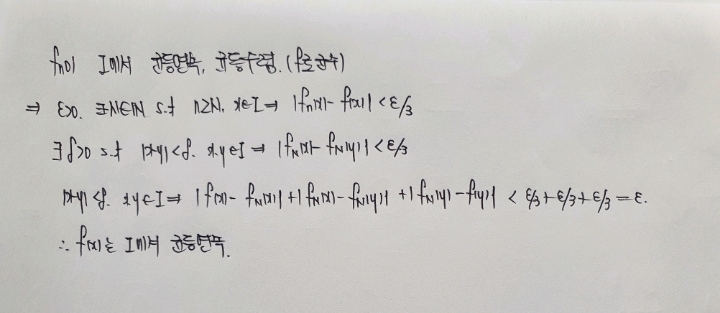 fn이 I에서 균등연속, 균등수렴. (f로 수렴)
⇒ ε>0. ∃N∈ℕ s.t n≥N, x∈I ⇒ |fn(x) - f(x)| < ε/3
∃δ>0 s.t |x-y|<δ. x,y∈I ⇒ |fN(x) - fN(y)| < ε/3
|x-y|<δ. x,y∈I ⇒ |f(x) - fN(x)| + |fN(x) - fN(y)| + |fN(y) - f(y)| < ε/3 + ε/3 + ε/3 = ε.
∴ f(x)는 I에서 균등연속.